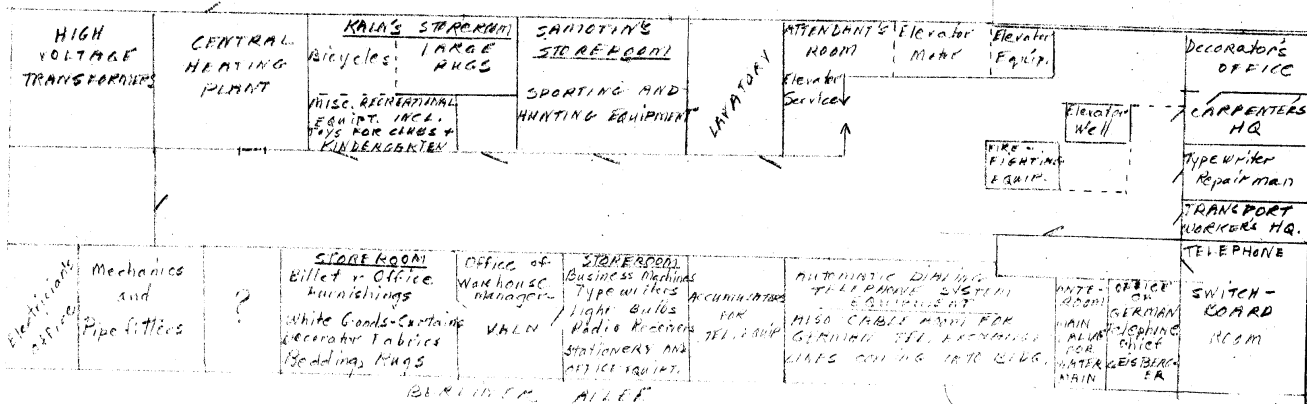 HIGH
VOLTAGE
TRANSFORMERS
CENTRAL
HEATING
PLANT
KALA'S STOREROOM
Bicycles
LARGE
RUGS
MISC. RECREATIONAL
EQUIPT. INCL.
TOYS FOR CLUBS +
KINDERGARTEN
SAMOTIN'S
STOREROOM
SPORTING AND
HUNTING EQUIPMENT
LAVATORY
ATTENDANT'S
ROOM
Elevator
Service
Elevator
Motor
Elevator
Equip.
Elevator
Well
FIRE-
FIGHTING
EQUIP.
Decorator's
OFFICE
CARPENTERS
HQ
Typewriter
Repairman
TRANSPORT
WORKER'S HQ.
TELEPHONE
SWITCH-
BOARD
ROOM
Electricians
office
Mechanics
and
Pipe fitters
?
STOREROOM
Billet + Office
Furnishings
White Goods-Curtains
Decorator Fabrics
Bedding, Rugs
Office of
Warehouse
Manager-
VALN
STOREROOM
Business Machines
Typewriters
Light Bulbs
Radio Receivers
Stationery AND
OFFICE EQUIPT.
ACCUMULATORS
FOR
TEL. EQUIP
AUTOMATIC DIALING
TELEPHONE SYSTEM
EQUIPMENT
ALSO CABLE FOR
GERMAN TEL. EXCHANGE
LINES COMING INTO BLDG.
ANTE-
ROOM
MAIN
VALVE
FOR
WATER
MAIN
OFFICE
OF
GERMAN
Telephone
Chief
GEISBERG-
ER
BERLINER ALLEE